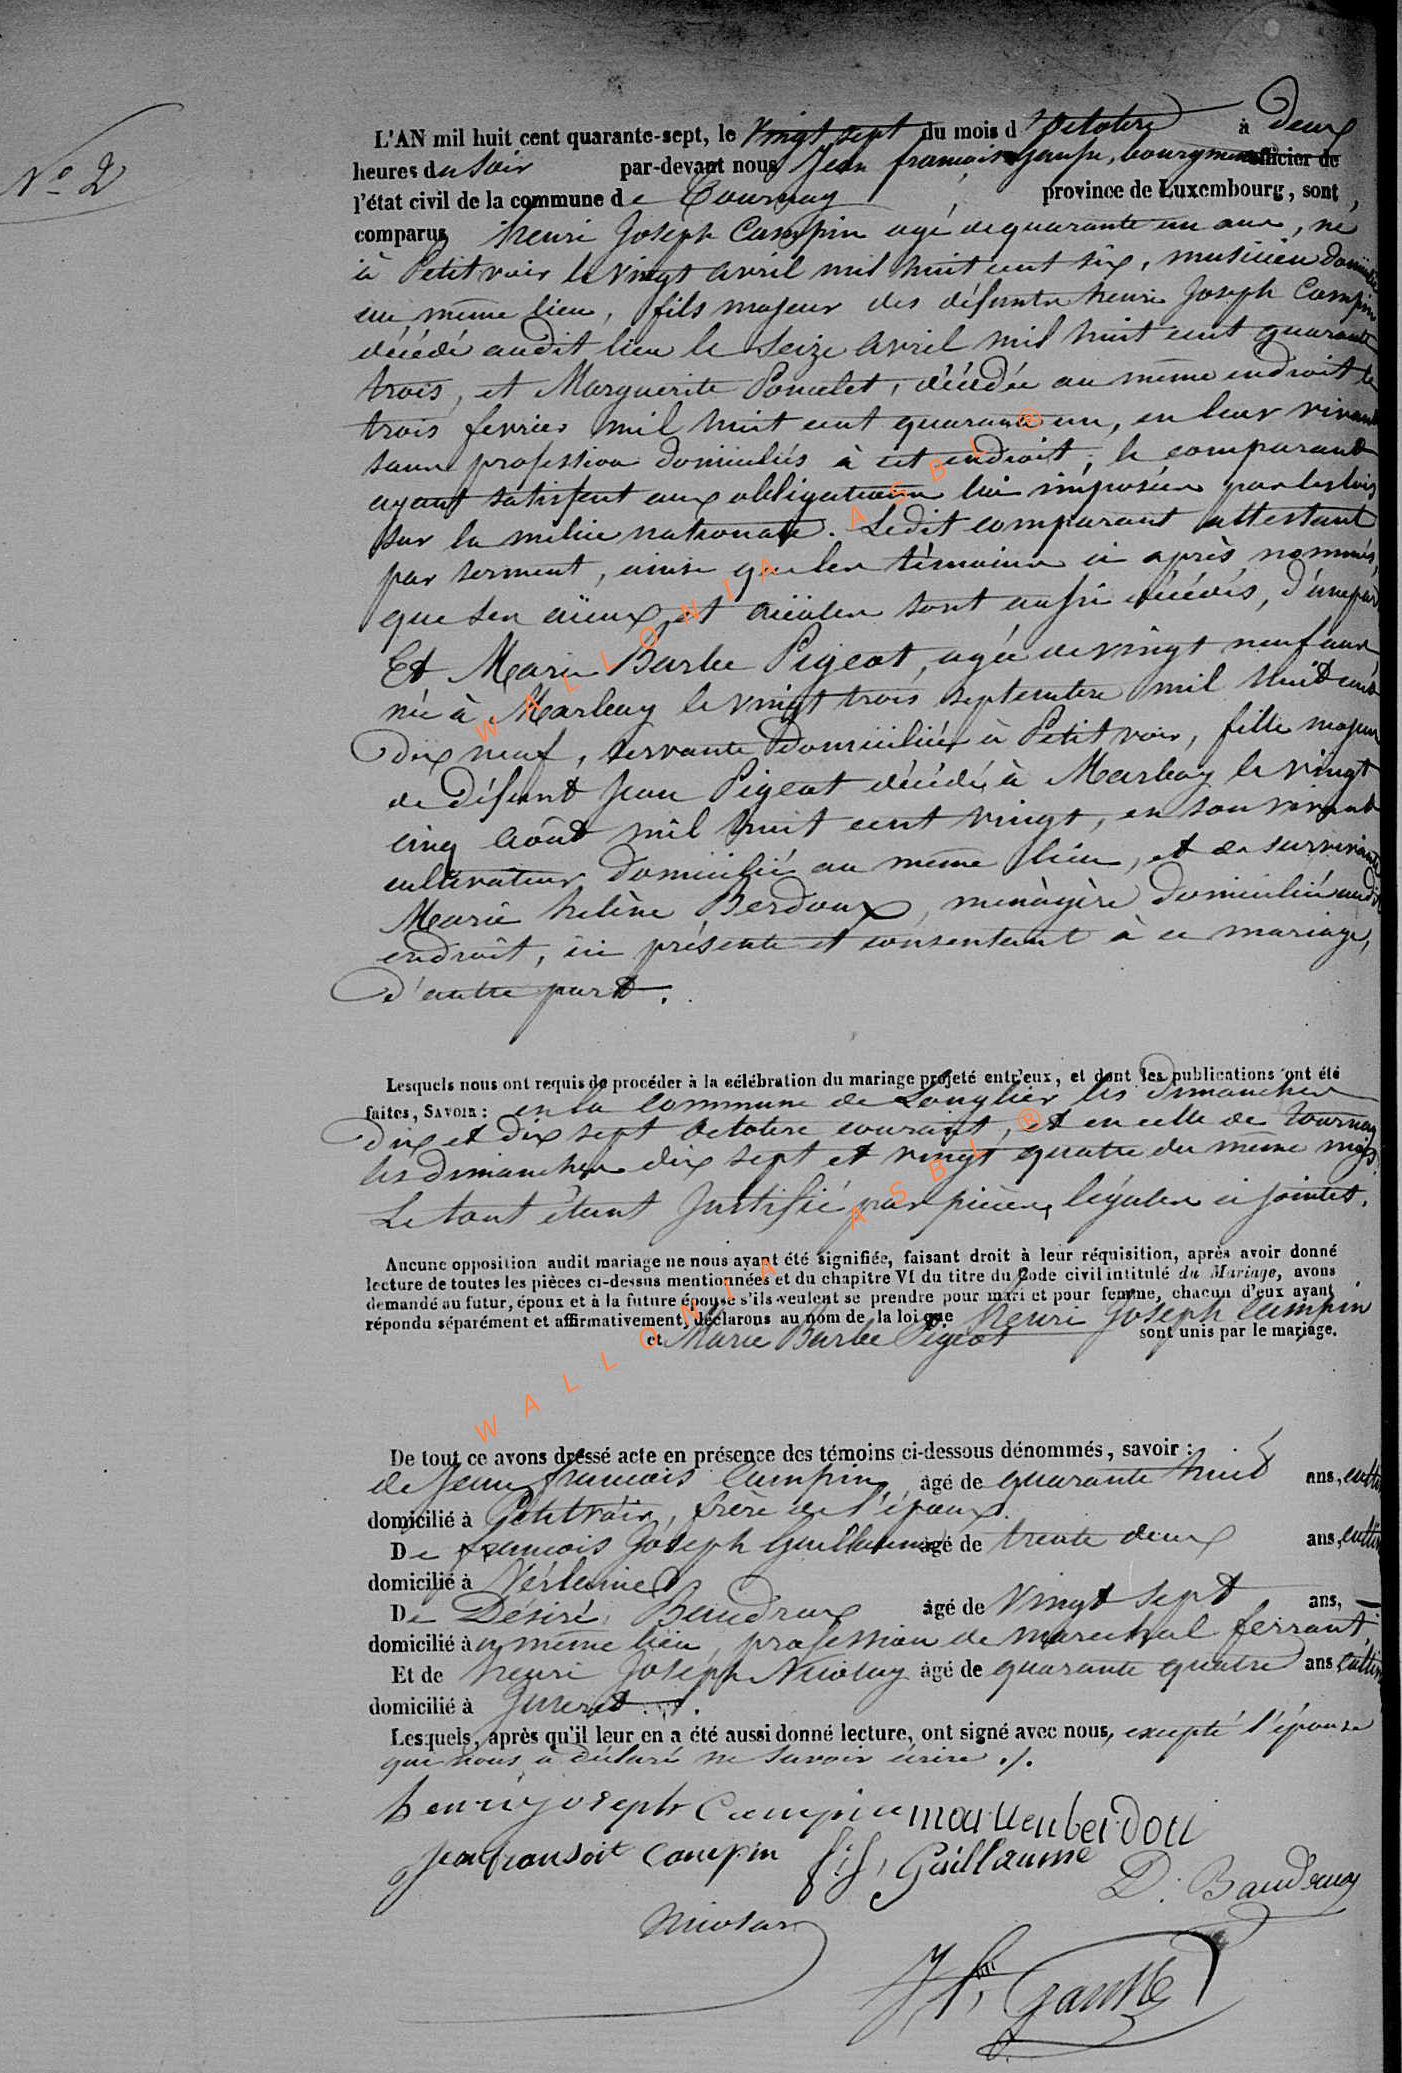 N° 2
L'AN mil huit cent quarante-sept, le vingt sept du mois d'octobre à deux
heures du soir par-devant nous Jean françois Gausse, bourgmestre officier de
l'état civil de la commune de Tournay province de Luxembourg, sont
comparus henri Joseph Campin agé de quarante un ans, né
à Petitvoir le vingt avril mil huit cent six, musicien domicilié
au même lieu, fils majeur des défunts henri Joseph Campin
décédé audit lieu le seize avril mil huit cent quarante
trois, et Marguerite Poncelet, décédée au même endroit le
trois fevrier mil huit cent quarante un, en leur vivant
sans profession domiciliés à cet endroit; le comparant
ayant satisfait aux obligations lui imposées par les lois
sur la milice nationale. Ledit comparant attestant
par serment, ainsi que les témoins ci après nommés,
que ses aïeux et aïeules sont aussi décédés, d'une part
Et Marie Barbe Pigeot, agée de vingt neuf ans
née à Marbay le vingt trois septembre mil huit cent
dix neuf, servante domiciliée à Petitvoir, fille majeure
de défunt Jean Pigeot décédé à Marbay le vingt
cinq août mil huit cent vingt, en son vivant
cultivateur domicilié au même lieu, et de survivante
Marie helène Berdoux, ménagère domiciliée audit
endroit, ici présente et consentant à ce mariage,
d'autre part.
Lesquels nous ont requis de procéder à la célébration du mariage projeté entr'eux, et dont les publications ont été
faites, SAVOIR: en la commune de Longlier les dimanches
dix et dix sept octobre courant, et en celle de Tournay
les dimanches dix sept et vingt quatre du meme mois.
Le tout étant justifié par pièces légales ci jointes.
Aucune opposition audit mariage ne nous ayant été signifiée, faisant droit à leur réquisition, après avoir donné
lecture de toutes les pièces ci-dessus mentionnées et du chapitre VI du titre du Code civil intitulé du Mariage, avons
demandé au futur, époux et à la future épouse s'ils veulent se prendre pour mari et pour femme, chacun d'eux ayant
répondu séparément et affirmativement, déclarons au nom de la loi que henri Joseph Campin
et Marie Barbe Pigeot sont unis par le mariage.
De tout ce avons dressé acte en présence des témoins ci-dessous dénommés, savoir:
de Jean francois Campin, âgé de quarante huit ans,
domicilié à Petitvoir, frère de l'époux.
De francois Joseph Guillaume âgé de trente deux ans,
domicilié à Verlaine
De Désiré Baudrux âgé de vingt sept ans,
domicilié à u même lieu, profession de marechal ferrant,
Et de henri Joseph Nicolay âgé de quarante quatre ans
domicilié à
Lesquels, après qu'il leur en a été aussi donné lecture, ont signé avec nous, excepté l'épouse
qui nous a déclaré ne savoir écrire ./.
henri joseph Campin
Jean fransoit Campin f.j. Guillaume
D. Baudrux
Nicolay
WALLONIA ASBL ®
WALLONIA ASBL ®